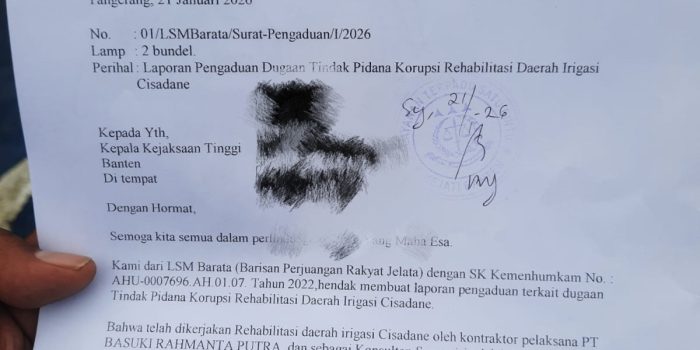 Tangerang, 21 Januari 2026
No. : 01/LSMBarata/Surat-Pengaduan/I/2026
Lamp : 2 bundel.
Perihal : Laporan Pengaduan Dugaan Tindak Pidana Korupsi Rehabilitasi Daerah Irigasi
Cisadane
21/ - 26
Kepada Yth,
Kepala Kejaksaan Tinggi
Banten
Di tempat
Dengan Hormat,
Semoga kita semua dalam yang Maha Esa.
Kami dari LSM Barata (Barisan Perjuangan Rakyat Jelata) dengan SK Kemenhumkam No. :
AHU-0007696.AH.01.07. Tahun 2022,hendak membuat laporan pengaduan terkait dugaan
Tindak Pidana Korupsi Rehabilitasi Daerah Irigasi Cisadane.
Bahwa telah dikerjakan Rehabilitasi daerah irigasi Cisadane oleh kontraktor pelaksana PT
BASUKI RAHMANTA PUTRA, dan sebagai